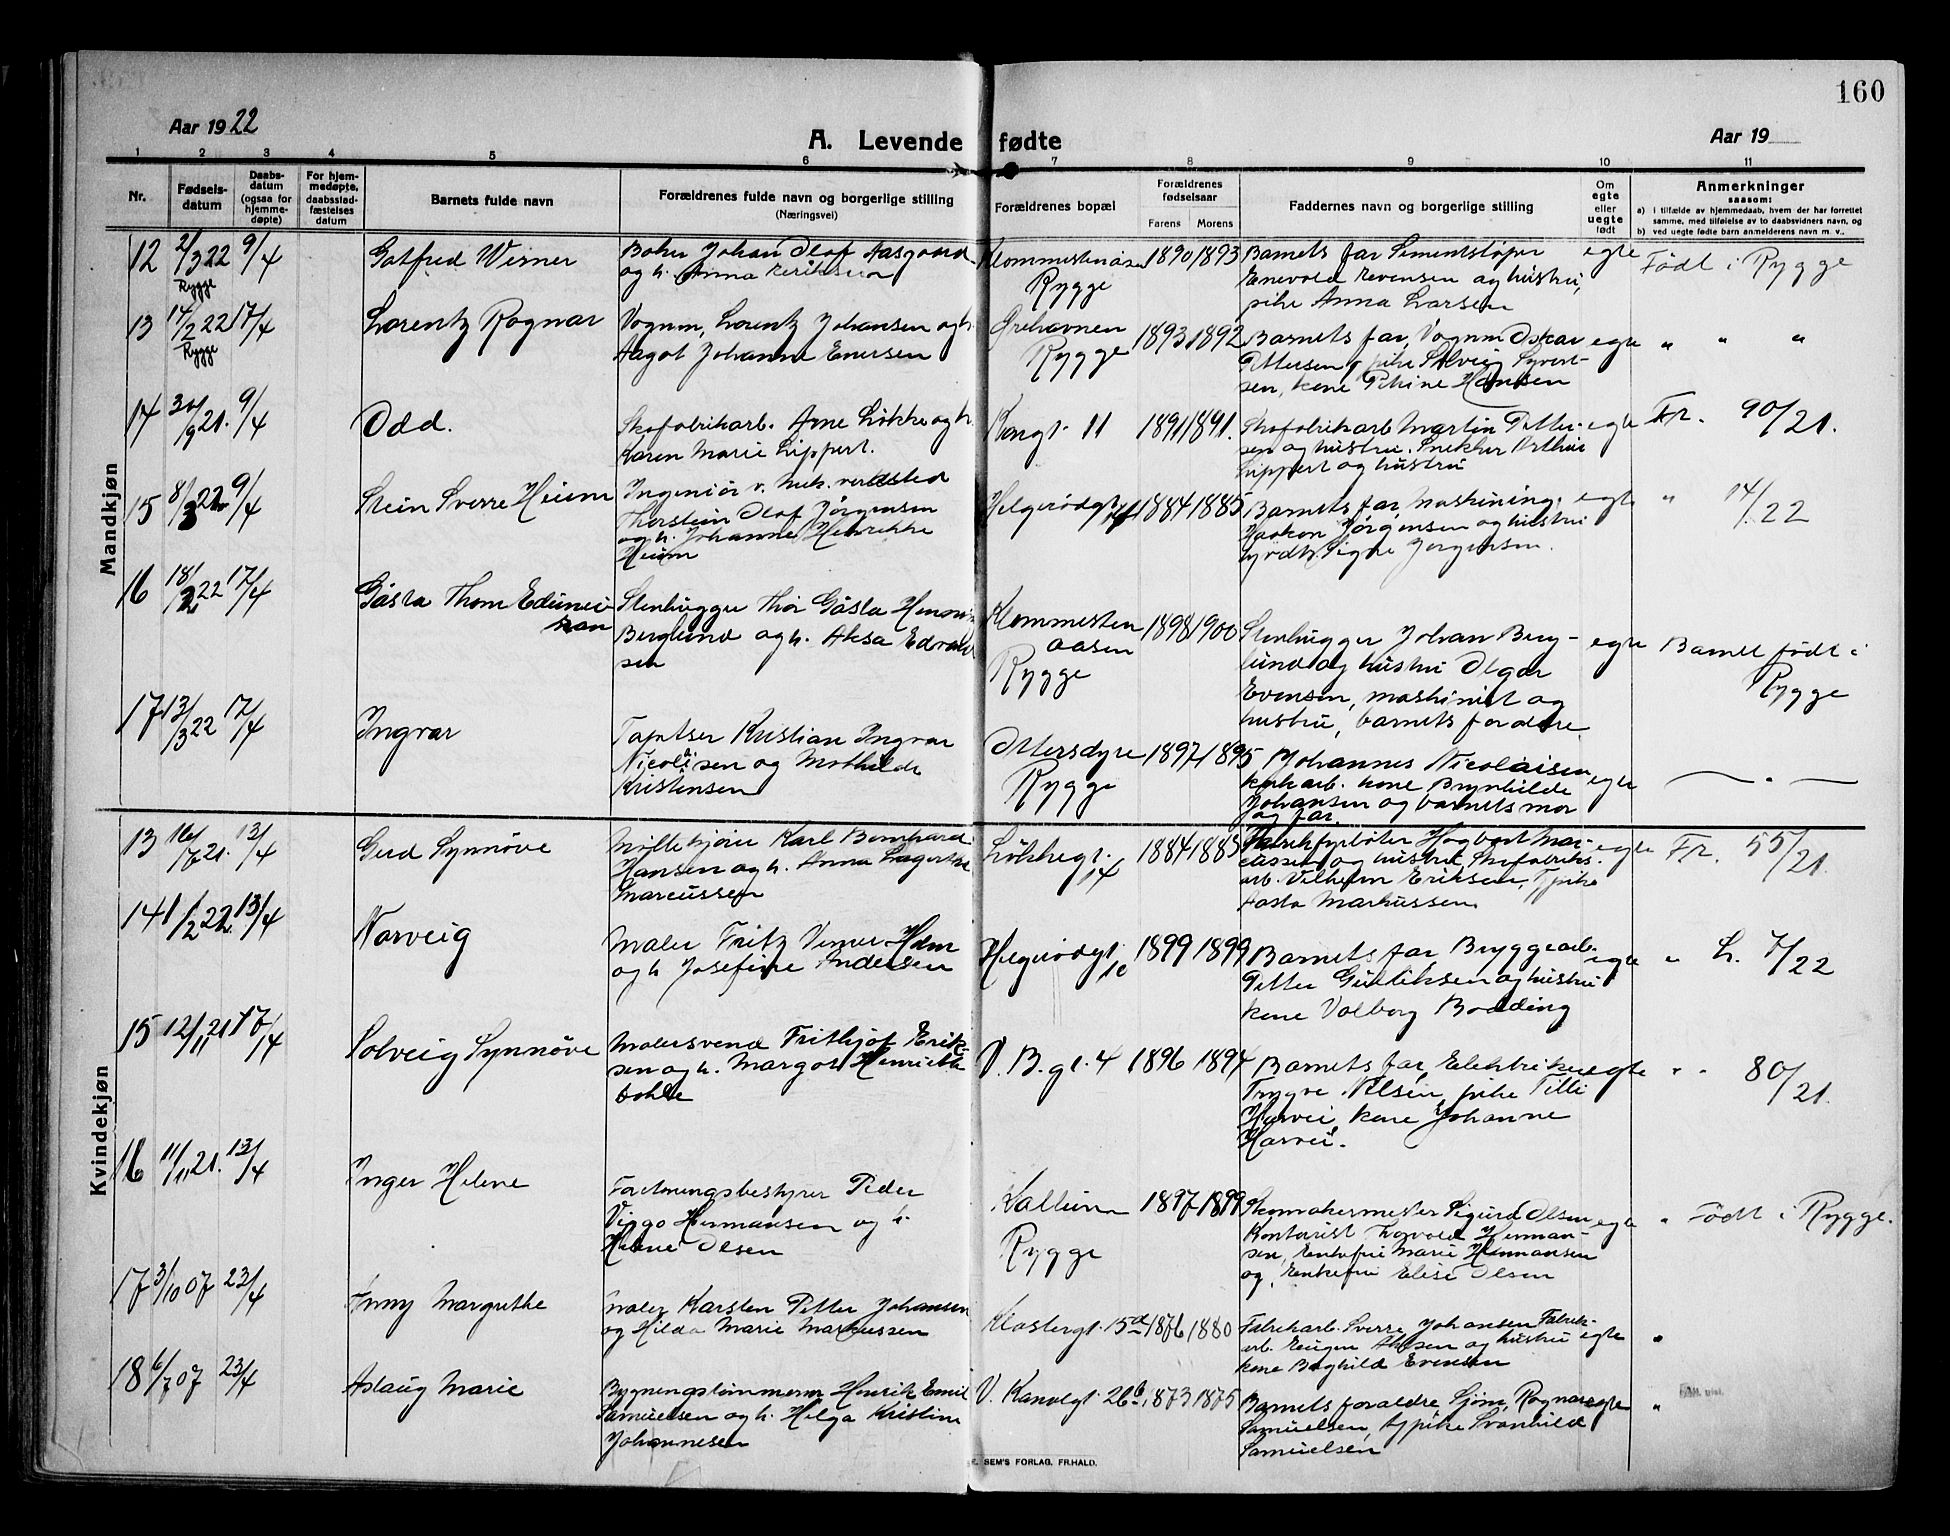 160
Aar 1922
A. Levende fødte
Aar 19
1 2 3 4 5 6 7 8 9 10 11
Nr.
Fødsels-
datum
Daabs-
datum
(ogsaa for
hjemme-
døpte)
For hjem-
medøpte,
daabsstad-
fæstelses
datum
Barnets fulde navn
Forældrenes fulde navn og borgerlige stilling
(Næringsvei)
Forældrenes bopæl
Forældrenes
fødselsaar
Farens Morens
Faddernes navn og borgerlige stilling
Om
egte
eller
uegte
født
Anmerkninger
saasom:
a) i tilfælde av hjemmedaab, hvem der har forrettet
samme, med tilføielse av to daabsvidners navn, og
b) ved uegte fødte barn anmelderens navn m. v.,
Mandkjøn
12 2/3 22 9/4
Rygge
Gotfred Werner
Johan Olof Aasgaard
og h. Anna Eriksen
Rygge
1890 1893
Barnets far Sementstøper
Enevold Evensen og hustru,
pike Anna Larsen
egte
Født i Rygge
13 14/2 22 17/4
Rygge
Lorentz Ragnar
Vognm. Lorentz Johansen og h.
Aagot Johanne Enersen
Ørehavnen
Rygge
1893 1892
Barnets far, Vognm Oskar
Pettersen, pike Solveig Syvert-
sen, kone Petrine Hansen
egte
" " "
14 30/9 21. 9/4
Odd.
Skofabrikarb. Arne Løkke og h.
Karen Marie Lippert.
Kongt. 11
1891 1891.
Skofabrikarb Martin Petter-
sen og hustru. Snekker Arthur
Lippert og hustru
egte
Fr. 90/21.
15 8/3 22 9/4
Stein Sverre Heum
Ingeniør v. mek. verksted
Thorstein Olaf Jörgensen
og h. Johanne Henrikke
Heum
Helgerødgt
1884 1885
Barnets far, Maskining.
Haakon Jørgensen og hustru
Signe Jørgensen.
egte
" 14/22
16 18/2 22 17/4
Gösta Thom
Stenhugger Thor Gösta
Berglund og h. Aksa
sen
Klommesten
aasen
Rygge
1898 1900
Stenhugger Johan Berg-
lund og hustru Olgar
Evensen, maskinist og
hustru, barnets foraldre
egte
Barnet født i
Rygge
17 13/3 22 17/4
Ingvar
Kristian Ingvar
Nicolaisen og Mathilde
Kristensen
Ottersdyre
Rygge
1897 1895
Johannes Nicolaisen
kone Brynhilde
Johansen og barnets mor
og far.
egte
— " —
Kvindekjøn
13 16/7 21. 13/4
Gerd Synnøve
Karl Bernhard
Hansen og h. Anna Lagertha
Marcussen
Løkkegt.
14
1884 1885
Fabrikfyrbøter Hagbart Mar-
cussen og hustru, Skofabriks-
arb. Vilhelm Eriksen, Tj pike
Aasta Markussen.
egte
Fr. 55/21.
14 1/2 22 13/4
Norveig
Maler Fritz Verner Holm
og h Josefine Andersen
Helgerødgt.
1899 1899
Barnets far Bryggearb.
Petter Gulliksen og hustru
kone Valborg Bodding
egte
" L. 7/22
15 12/11 21 17/4
Solveig Synnøve
Malersvend Frithjof Erik-
sen og h. Margot Henriette
Dohle
V. B. gt. 4
1896 1894
Barnets far, Elektriker
Trygve Nilsen, pike Tilli
Harvei, kone Johanne
Harvei.
egte
" " 80/21.
16 11/11 21. 13/4
Inger Helene
Forretningsbestyrer Peder
Viggo Hermansen og h.
Helene Olsen
Kallum
Rygge
1897 1899
Skomakermester Sigurd Olsen
Kontorist Thorvald Herman-
sen, Enkefru Marie Hermansen
og, Enkefru Elise Olsen
egte
" Født i Rygge.
17 3/10 07 23/4
Anny Margrethe
Maler Karsten Petter Johansen
og Hilda Marie Markussen
Klostergt. 15d
1876 1880
Fabrikarb. Sverre Johansen Fabrik-
arb. Eugen Olsen og hustru
kone Borghild Evensen
egte
"
18 6/7 07 23/4
Aslaug Marie
Bygningstømmerm Henrik Emil
Samuelsen og h. Helga Kristine
Johannesen
V. Kanalgt. 26b.
1873 1875
Barnets foraldre Sjøm. Ragnar
Samuelsen, Tj pike Svanhild
Samuelsen
egte
"
SEM'S FORLAG, FR.HALD.